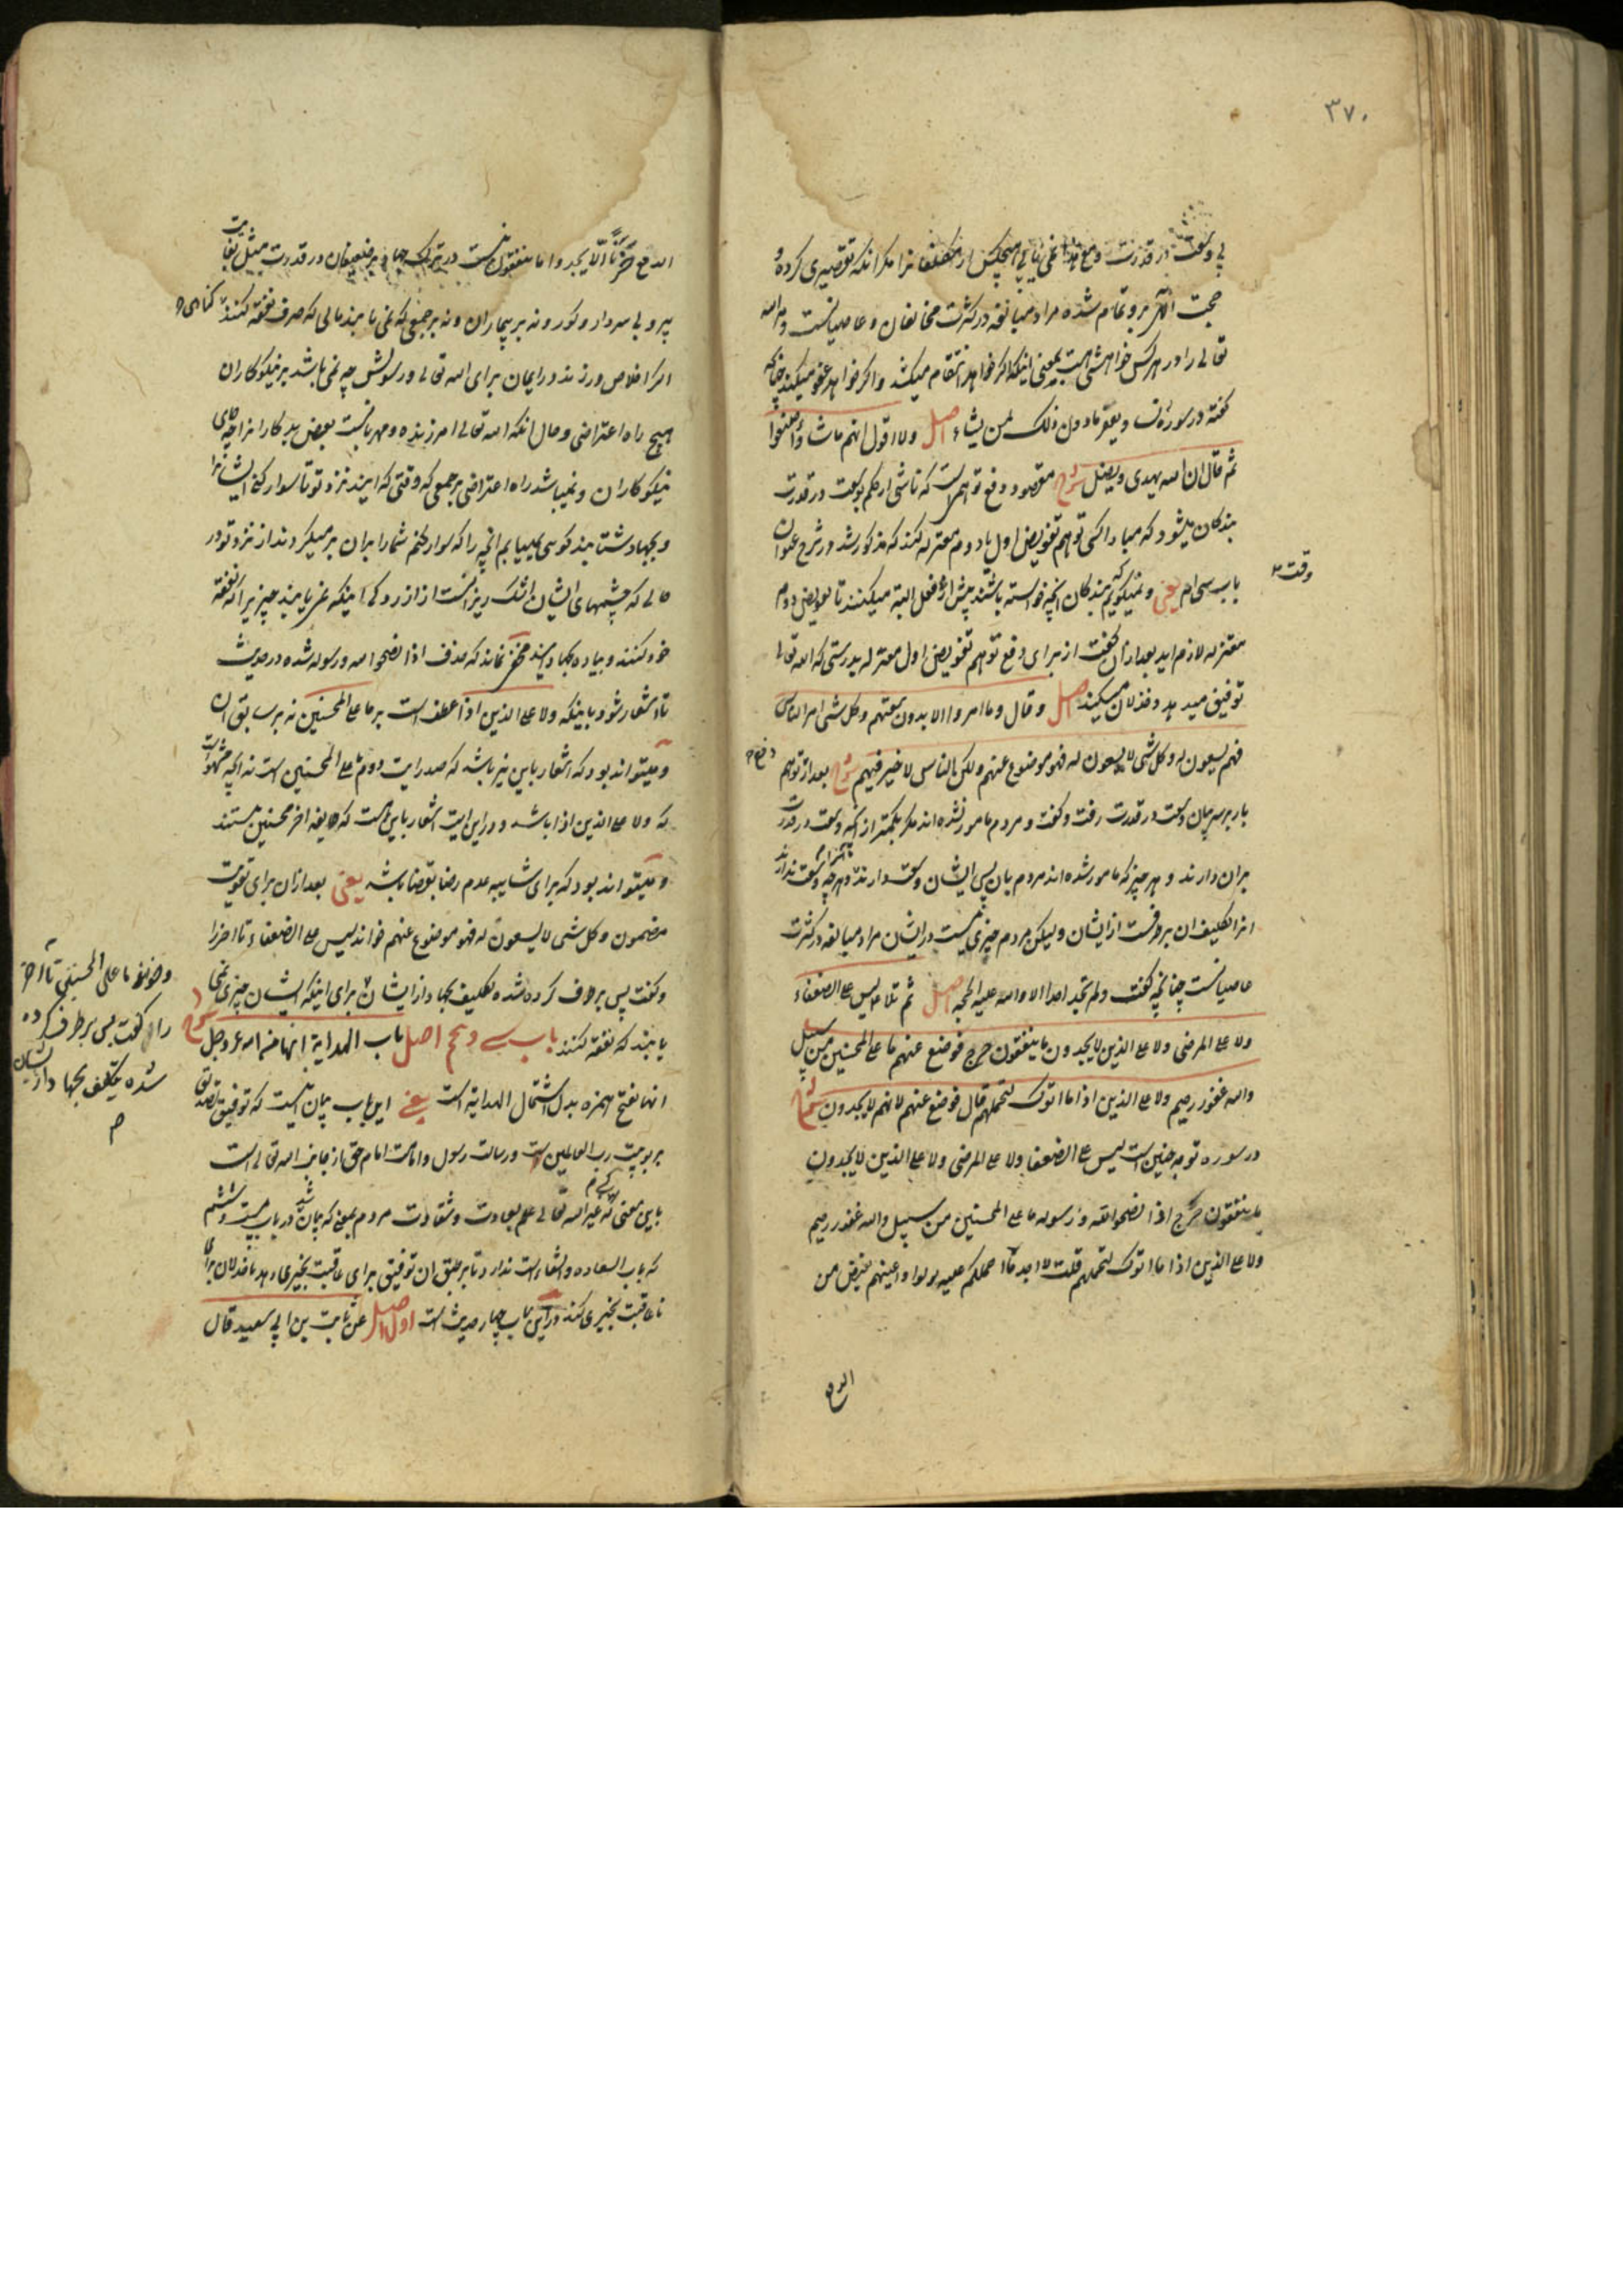 ۳۷۰
بی وسعت در قدرت و مع هذا نمی یابی هیچکس از مکلفانرا مگر آنکه تقصیری کرده و
حجت الهی برو تمام شده مراد مبالغه در کثرت مخالفان و عاصیانست و مر الله
تعالی را در هر کس خواهشی هست بمعنی اینکه اگر خواهد انتقام میکشد و اگر خواهد عفو میکند چنانکه
گفته در سوره نسا و یغفر ما دون ذلک لمن یشاء اصل ولا اقول انهم ما شاؤا صنعوا
ثم قال ان الله یهدی و یضل شرح مقصود دفع توهمی است که ناشی از حکم بوسعت در قدرت
بندگان میشود که مبادا کسی توهم تفویض اول یا دوم معتزله کند که مذکور شد در شرح عنوان
باب سی ام یعنی و نمیگویم که بندگان آنچه خواسته باشند پیش از وقت فعل البته میکنند تا تفویض دوم
معتزله لازم آید بعد از آن گفت از برای دفع توهم تفویض اول معتزله بدرستی که الله تعالی
توفیق میدهد و خذلان میکند اصل و قال وما امروا الا بدون سعتهم وکل شی امر الناس به
فهم یسعون له وکل شی لا یسعون له فهو موضوع عنهم ولکن الناس لا خیر فیهم شرح بعد از دفع توهم
باز بر سر بیان وسعت در قدرت رفت و گفت و مردم مامور نشده اند مگر بکمتر از آنچه وسعت در قدرت
بران دارند و هر چیز که مامور شده اند مردم بآن پس ایشان وسعت دارند آنرا و هر چه وسعت ندارند
انرا تکلیف ان برطرفست از ایشان و لیکن مردم چیزی نیست در ایشان مراد مبالغه در کثرت
عاصیانست چنانچه گفت ولم تجد احدا الا ولله علیه الحجه اصل ثم تلا علیه لیس علی الضعفاء
ولا علی المرضی ولا علی الذین لا یجدون ما ینفقون حرج فوضع عنهم ما علی المحسنین من سبیل
والله غفور رحیم ولا علی الذین اذا ما اتوک لتحملهم قال فوضع عنهم لانهم لا یجدون شرح
در سوره توبه چنین است لیس علی الضعفا ولا علی المرضی ولا علی الذین لا یجدون
ما ینفقون حرج اذا نصحوا لله ورسوله ما علی المحسنین من سبیل والله غفور رحیم
ولا علی الذین اذا ما اتوک لتحملهم قلت لا اجد ما احملکم علیه تولوا واعینهم تفیض من
الدمع
الدمع حزنا الا یجدوا ما ینفقون نیست در ترک جهاد بر ضعیفان در قدرت مثل بغایت
پیر و بی سردار و کور و نه بر بیماران و نه بر جمعی که نمی یابند مالی که صرف نفقه کنند گناهی
اگر اخلاص ورزند در ایمان برای الله تعالی و رسولش چه نمی باشد بر نیکوکاران
هیچ راه اعتراضی و حال آنکه الله تعالی آمرزنده و مهربانست بعض بدکارانرا چه جای
نیکوکاران و نمیباشد راه اعتراضی بر جمعی که وقتی که آیند نزد تو تا سوار کنی ایشانرا
و بجهاد شتابند گوئی نمییابم آنچه را که سوار کنم شما را بران بر میگردند از نزد تو در
حالی که چشمهای ایشان اشک ریز است از آزردگی اینکه نمی یابند چیزیرا که نفقه
خود کنند و پیاده بجهاد آیند مخفی نماند که حذف اذا نصحوا لله ورسوله شده در حدیث
تا اشعار شود باینکه ولا علی الذین اذا عطف است بر ما علی المحسنین نه بر سابق ان
و میتواند بود که اشعار باین نیز باشد که صدر آیت دوم ما علی المحسنین است نه آنچه مشهور است
که ولا علی الذین اذا باشد و در این آیت اشعار باین هست که طایفه اخر محسنین هستند
و میتواند بود که برای شایبه عدم رضا بقضا باشد یعنی بعد ازان برای تقویت
مضمون وکل شی لا یسعون له فهو موضوع عنهم خواند لیس علی الضعفاء تا آخر را
و گفت پس برطرف کرده شده تکلیف بجهاد از ایشان برای اینکه ایشان چیزی نمی
یابند که نفقه کنند باب سی و پنجم اصل باب الهدایة انها من الله عز وجل شرح
انها بفتح همزه بدل اشتمال الهدایة است یعنی این باب بیان اینست که توفیق تصدیق
بربوبیت رب العالمین و رسالت رسول و امامت امام حق از جانب الله تعالی است
باین معنی که غیر الله تعالی علم بسعادت و شقاوت مردم بمعنی که بیان شد در باب بیست و هشتم
که باب السعاده والشقاء است ندارد تا بر طبق ان توفیق برای عاقبت بخیری دهد یا خذلان برای
نا عاقبت بخیری کند در این باب چهار حدیث است اول اصل عن ثابت بن ابی سعید قال
وخواند ما علی المحسنین تا آخر
را و گفت پس برطرف کرده
شده تکلیف بجهاد از ایشان